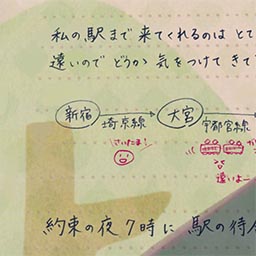 私の駅まで来てくれるのは とて
遠いので どうか 気をつけて きて
新宿 埼京線 大宮 宇都宮線
さいたま!
遠いよー
約束の夜7時に 駅の待合